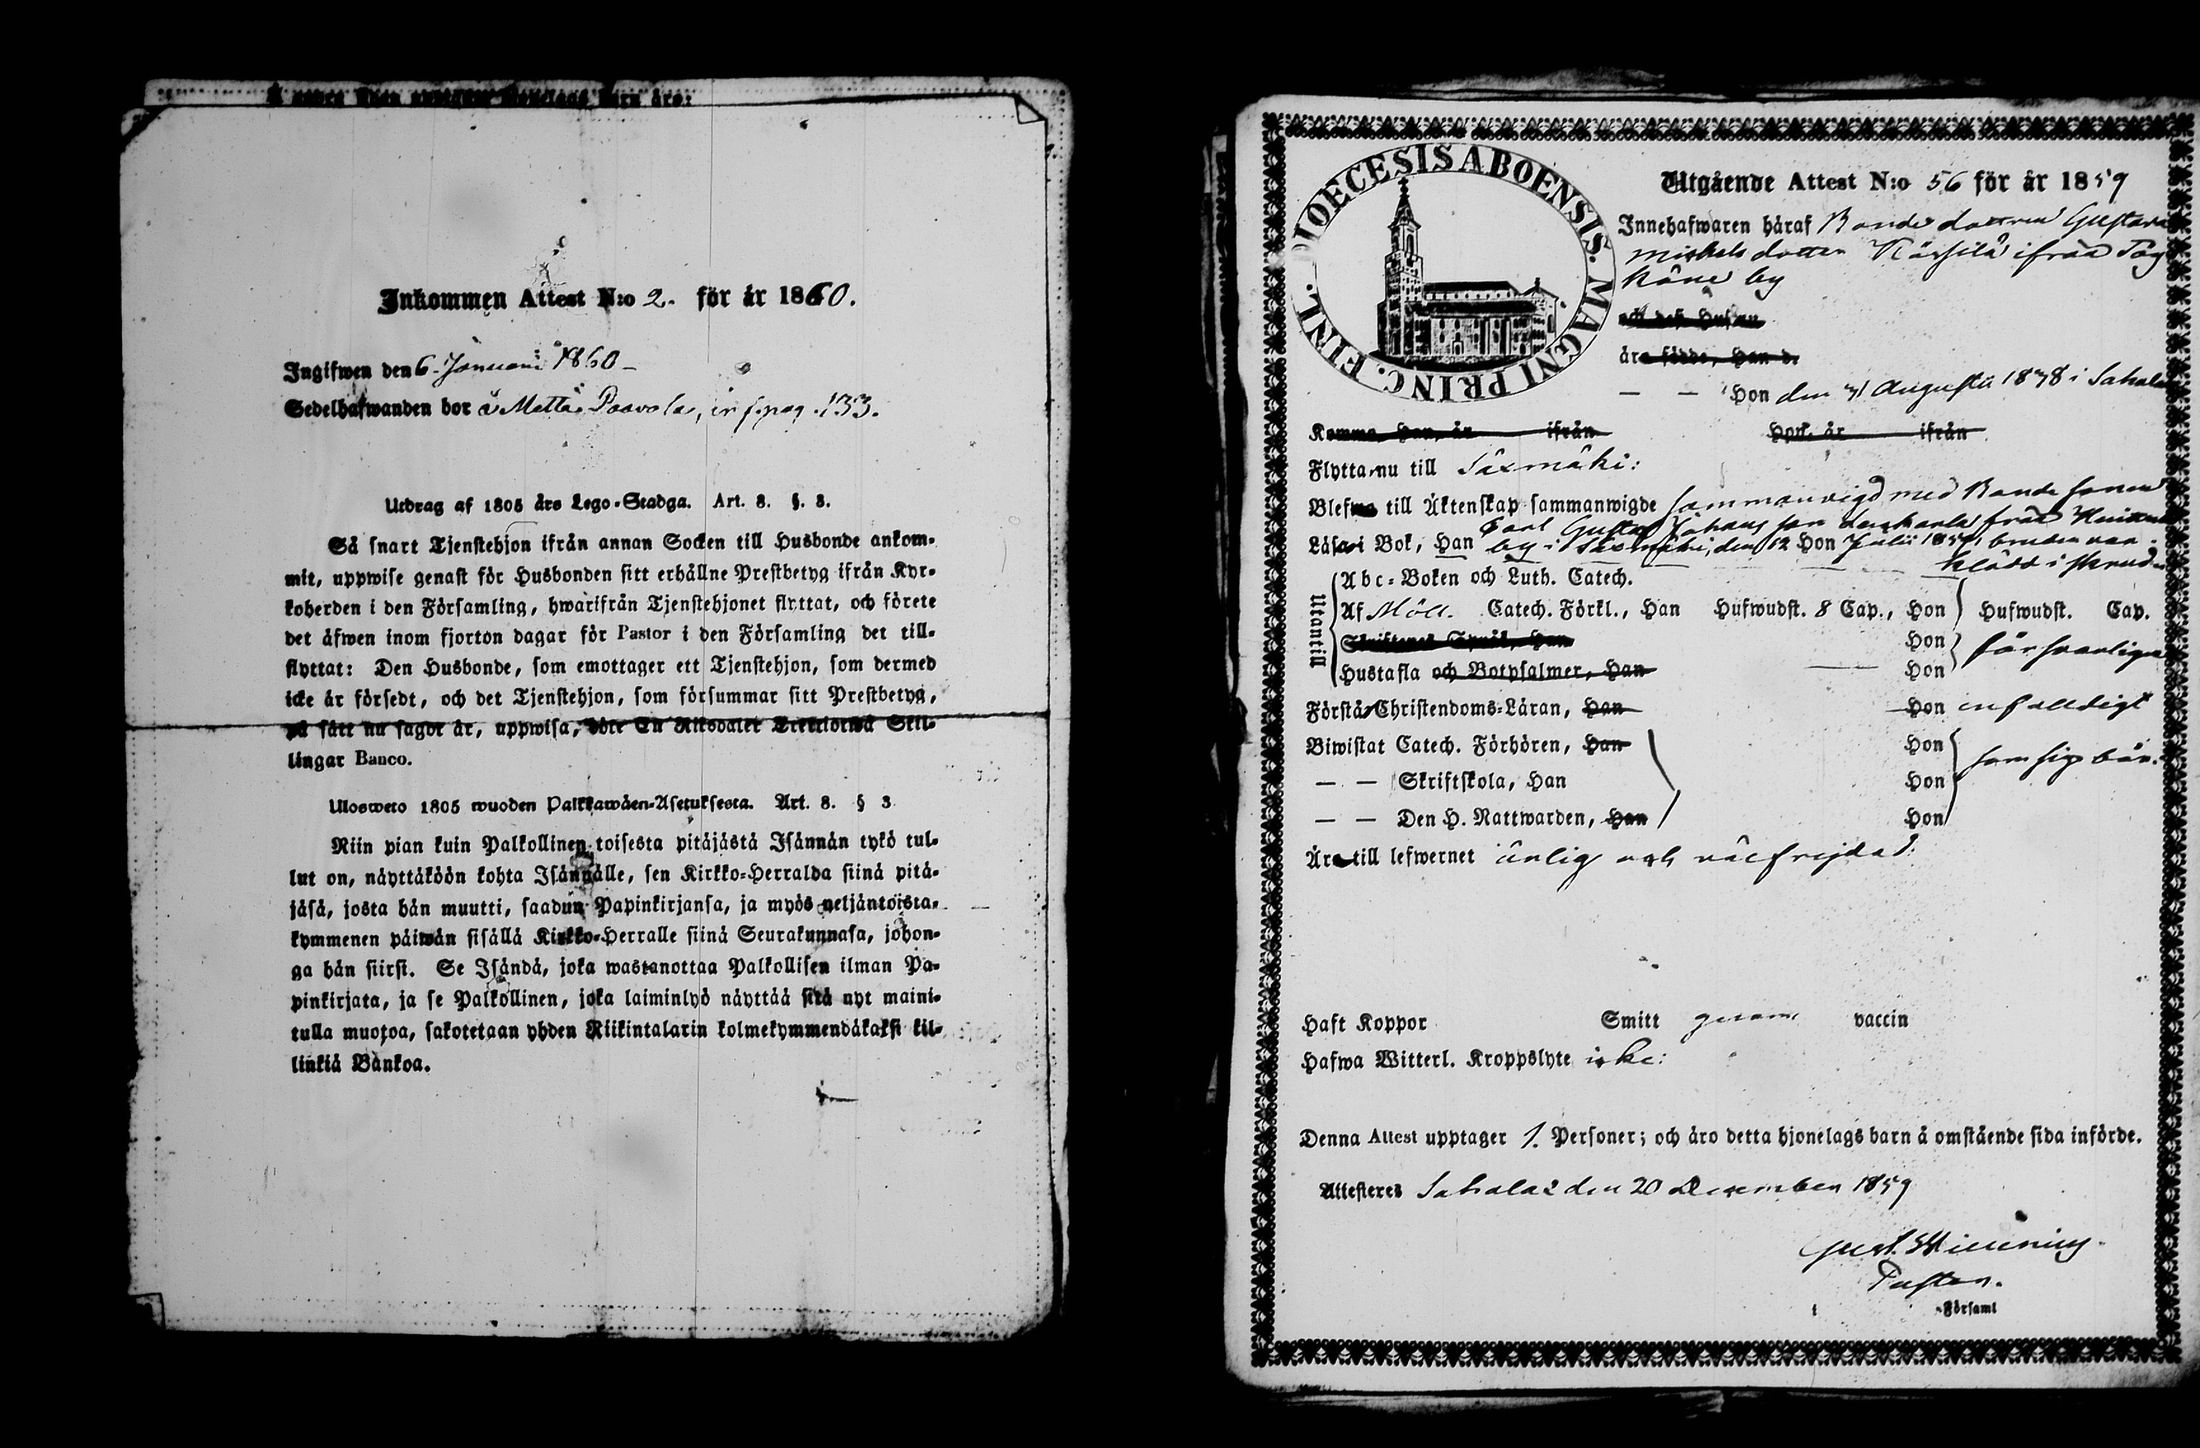 Inkommen Attest N:o 2. för år 1860.
Ingifwen den 6. Januari 1860 –
Sedelhafwanden bor å Mettä Paavola, inf. pag. 133.
Utdrag af 1805 års Lego-Stadga. Art. 8. §. 3.
Så snart Tjenstehjon ifrån annan Socken till Husbonde ankom-
mit, uppwise genast för Husbonden sitt erhållne Prestbetyg ifrån Kyr-
koherden i den Församling, hwarifrån Tjenstehjonet flyttat, och förete
det äfwen inom fjorton dagar för Pastor i den Församling det till-
flyttat: Den Husbonde, som emottager ett Tjenstehjon, som dermed
icke är försedt, och det Tjenstehjon, som försummar sitt Prestbetyg,
på sätt nu sagdt är, uppwisa, böte En Riksdaler Trettiotwå Skil-
lingar Banco.
Ulosweto 1805 wuoden Palkkawäen-Asetuksesta. Art. 8. § 3
Niin pian kuin Palkollinen toisesta pitäjästä Isännän tykö tul-
lut on, näyttäköön kohta Isännälle, sen Kirkko-Herralda siinä pitä-
jäsä, josta hän muutti, saadun Papinkirjansa, ja myös neljäntoista-
kymmenen päiwän sisällä Kirkko-Herralle siinä Seurakunnasa, johon-
ga hän siirsi. Se Isändä, joka wastanottaa Palkollisen ilman Pa-
pinkirjata, ja se Palkollinen, joka laiminlyö näyttää sitä nyt maini-
tulla muotoa, sakotetaan yhden Riikintalarin kolmekymmendäkaksi kil-
linkiä Bankoa.
DIOECESIS ABOENSIS. MAGNI PRINC. FINL.
Utgående Attest N:o 56 för år 1859
Innehafwaren häraf Bonde dottren Gustava
Michels dotter ifrån
by
och des Hustru
äro födde, Han d.
— — Hon den Augusti 1838 i Sahalax
Komma, Han, år ifrån Hon, år ifrån
Flytta nu till Säxmäki:
Blefwo till Äktenskap sammanwigde sammanvigd med Bonde sonen
Carl Gustaf Johans son från
Läsa i Bok, Han by i Säxmäki, den 12 Hon Julii 1859, bruden var
klädd i skrud
Utantill
Abc-Boken och Luth. Catech.
Af Möll. Catech. Förkl., Han Hufwudst. 8 Cap., Hon Hufwudst. Cap.
Skriftenes Språk, Han Hon försvarligen
Hustafla och Botpsalmer, Han Hon
Förstår Christendoms-Läran, Han Hon enfaldigt
Biwistat Catech. Förhören, Han Hon
som sig bör.
— — Skriftskola, Han Hon
— — Den H. Nattwarden, Han Hon
Äro till lefwernet ärlig och välfrejdad
Haft Koppor Smitt genom vaccin
Hafwa Witterl. Kroppslyte icke:
Denna Attest upptager 1. Personer; och äro detta hjonelags barn å omstående sida införde.
Attesteres Sahalax den 20 December 1859
Pastor.
i Församl